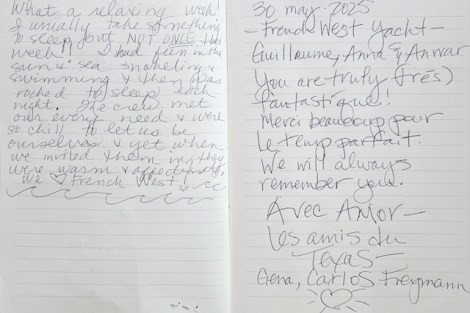 What a relaxing week!
I usually take something
to sleep but NOT ONCE this
week!! I had fun in the
sun & sea snorkeling &
swimming & then was
rocked to sleep each
night. The crew met
our every need & were
so chill to let us be
ourselves & yet when
we invited them in, they
were warm & affectionate.
We ♡ French West!
30 may. 2025
- French West Yacht -
Guillaume, Anna & Anwar
You are truly (très)
fantastique!!
Merci beaucoup pour
Le temp parfait.
We will always
remember you.
Avec AMOR -
Les amis du
Texas -
Gena, Carlos Freymann